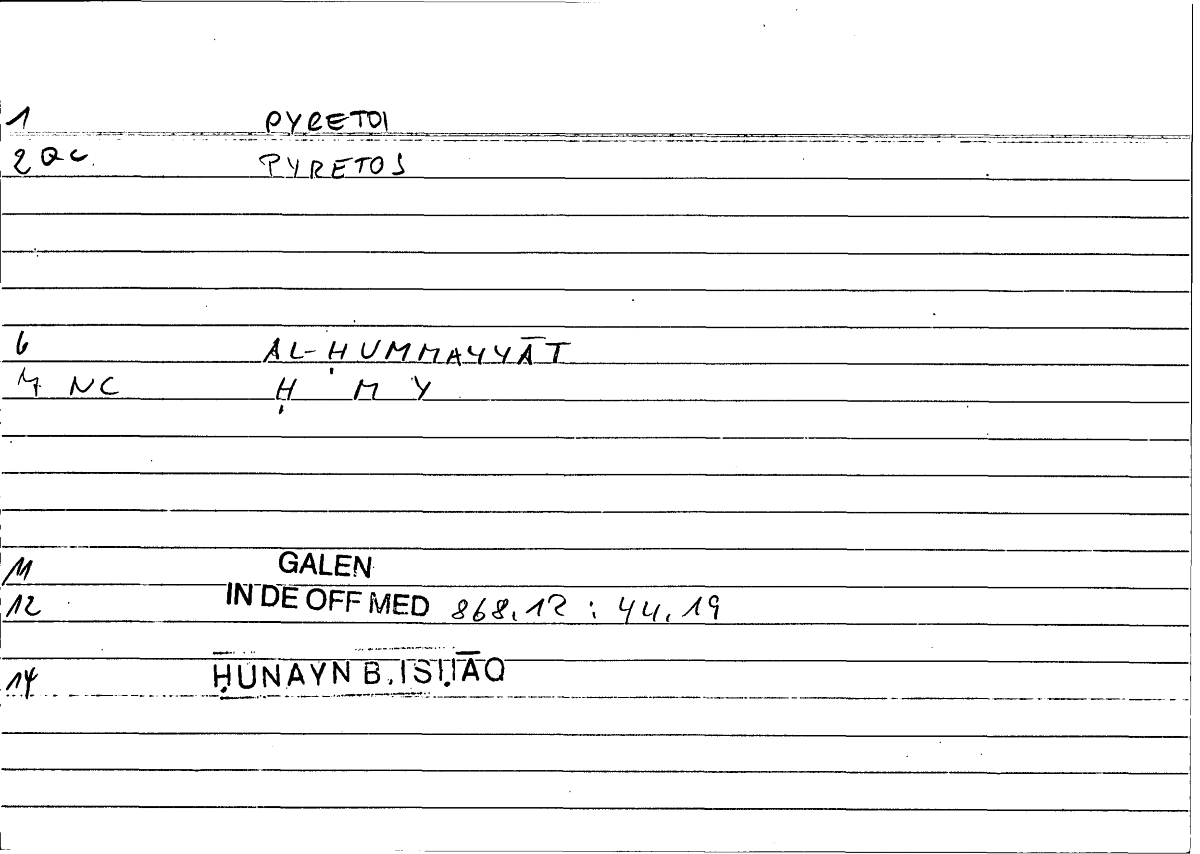 1 PYRETOI
2 QC PYRETOS
6 AL-ḤUMMAYYĀT
7 NC Ḥ M Y
11 GALEN
12 IN DE OFF MED 868,12 : 44,19
14 ḤUNAYN B. ISḤĀQ